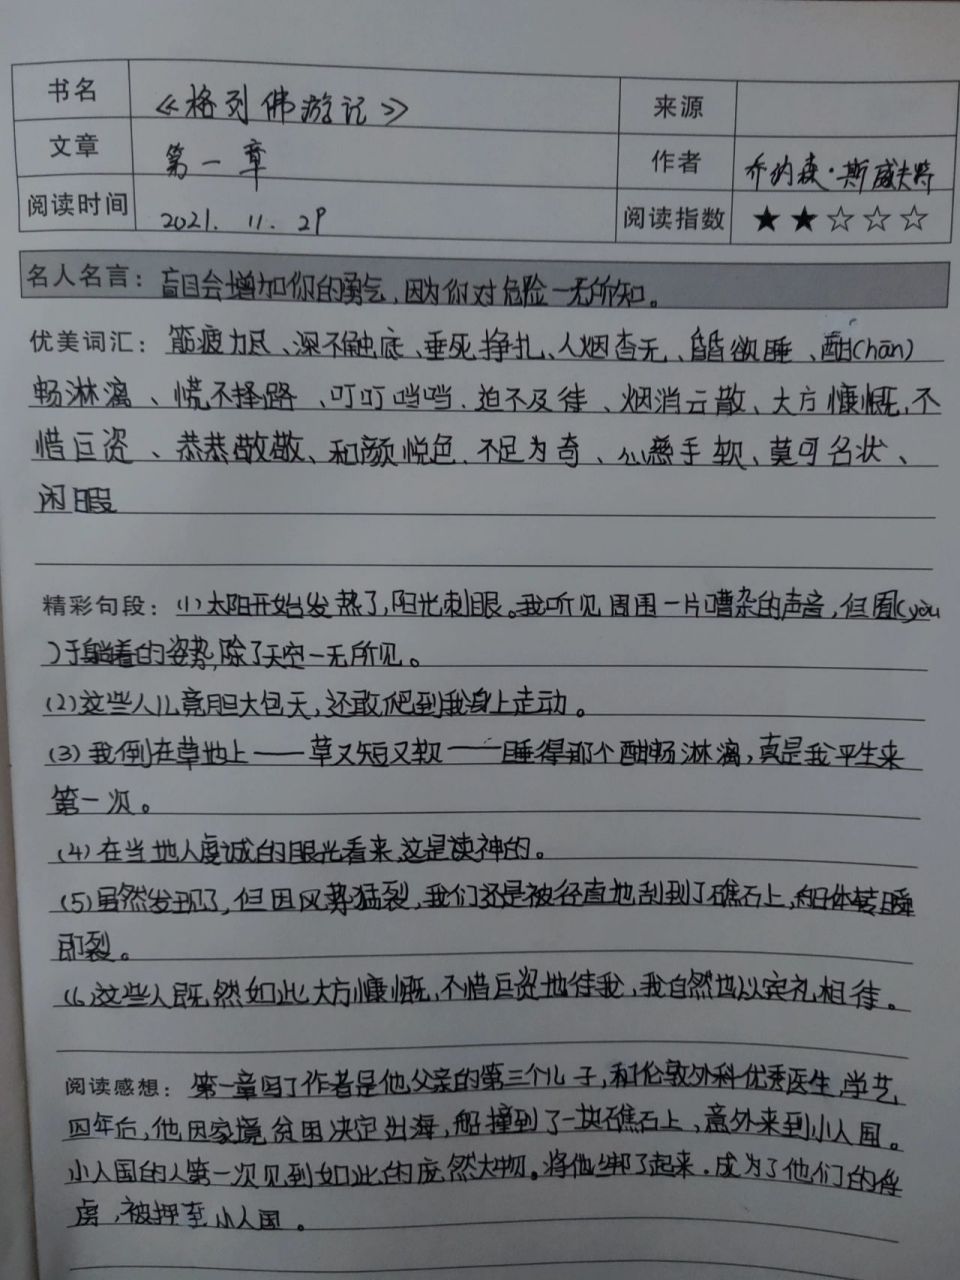 书名 《格列佛游记》 来源
文章 第一章 作者 乔纳森·斯威夫特
阅读时间 2021. 11. 29 阅读指数 ★★☆☆☆
名人名言：盲目会增加你的勇气，因为你对危险一无所知。
优美词汇：筋疲力尽、深不触底、垂死挣扎、人烟杳无、昏昏欲睡、酣(hān)
畅淋漓、慌不择路、叮叮当当、迫不及待、烟消云散、大方慷慨、不
惜巨资、恭恭敬敬、和颜悦色、不足为奇、心慈手软、莫可名状、
闲暇
精彩句段：(1)太阳开始发热了，阳光刺眼。我听见周围一片嘈杂的声音，但囿(yòu
)于躺着的姿势，除了天空一无所见。
(2)这些人儿竟胆大包天，还敢爬到我身上走动。
(3)我倒在草地上——草又短又软——睡得那个酣畅淋漓，真是我平生来
第一次。
(4)在当地人虔诚的眼光看来，这是渎神的。
(5)虽然发现了，但因风势猛裂，我们还是被径直地刮到了礁石上，船体转瞬
即裂。
(6)这些人既然如此大方慷慨，不惜巨资地待我，我自然也以宾礼相待。
阅读感想：第一章写了作者是他父亲的第三个儿子，和伦敦外科优秀医生学艺
四年后，他因家境贫困决定出海，船撞到了一块礁石上，意外来到小人国。
小人国的人第一次见到如此的庞然大物。将他绑了起来．成为了他们的俘
虏，被押至小人国。